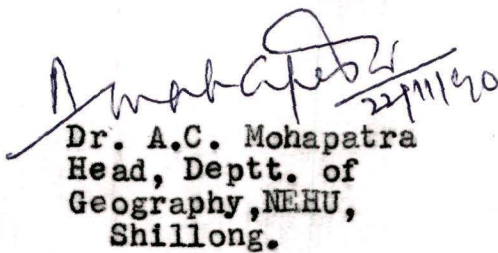 Amohapatra
22/11/90
Dr. A.C. Mohapatra
Head, Deptt. of
Geography,NEHU,
Shillong.